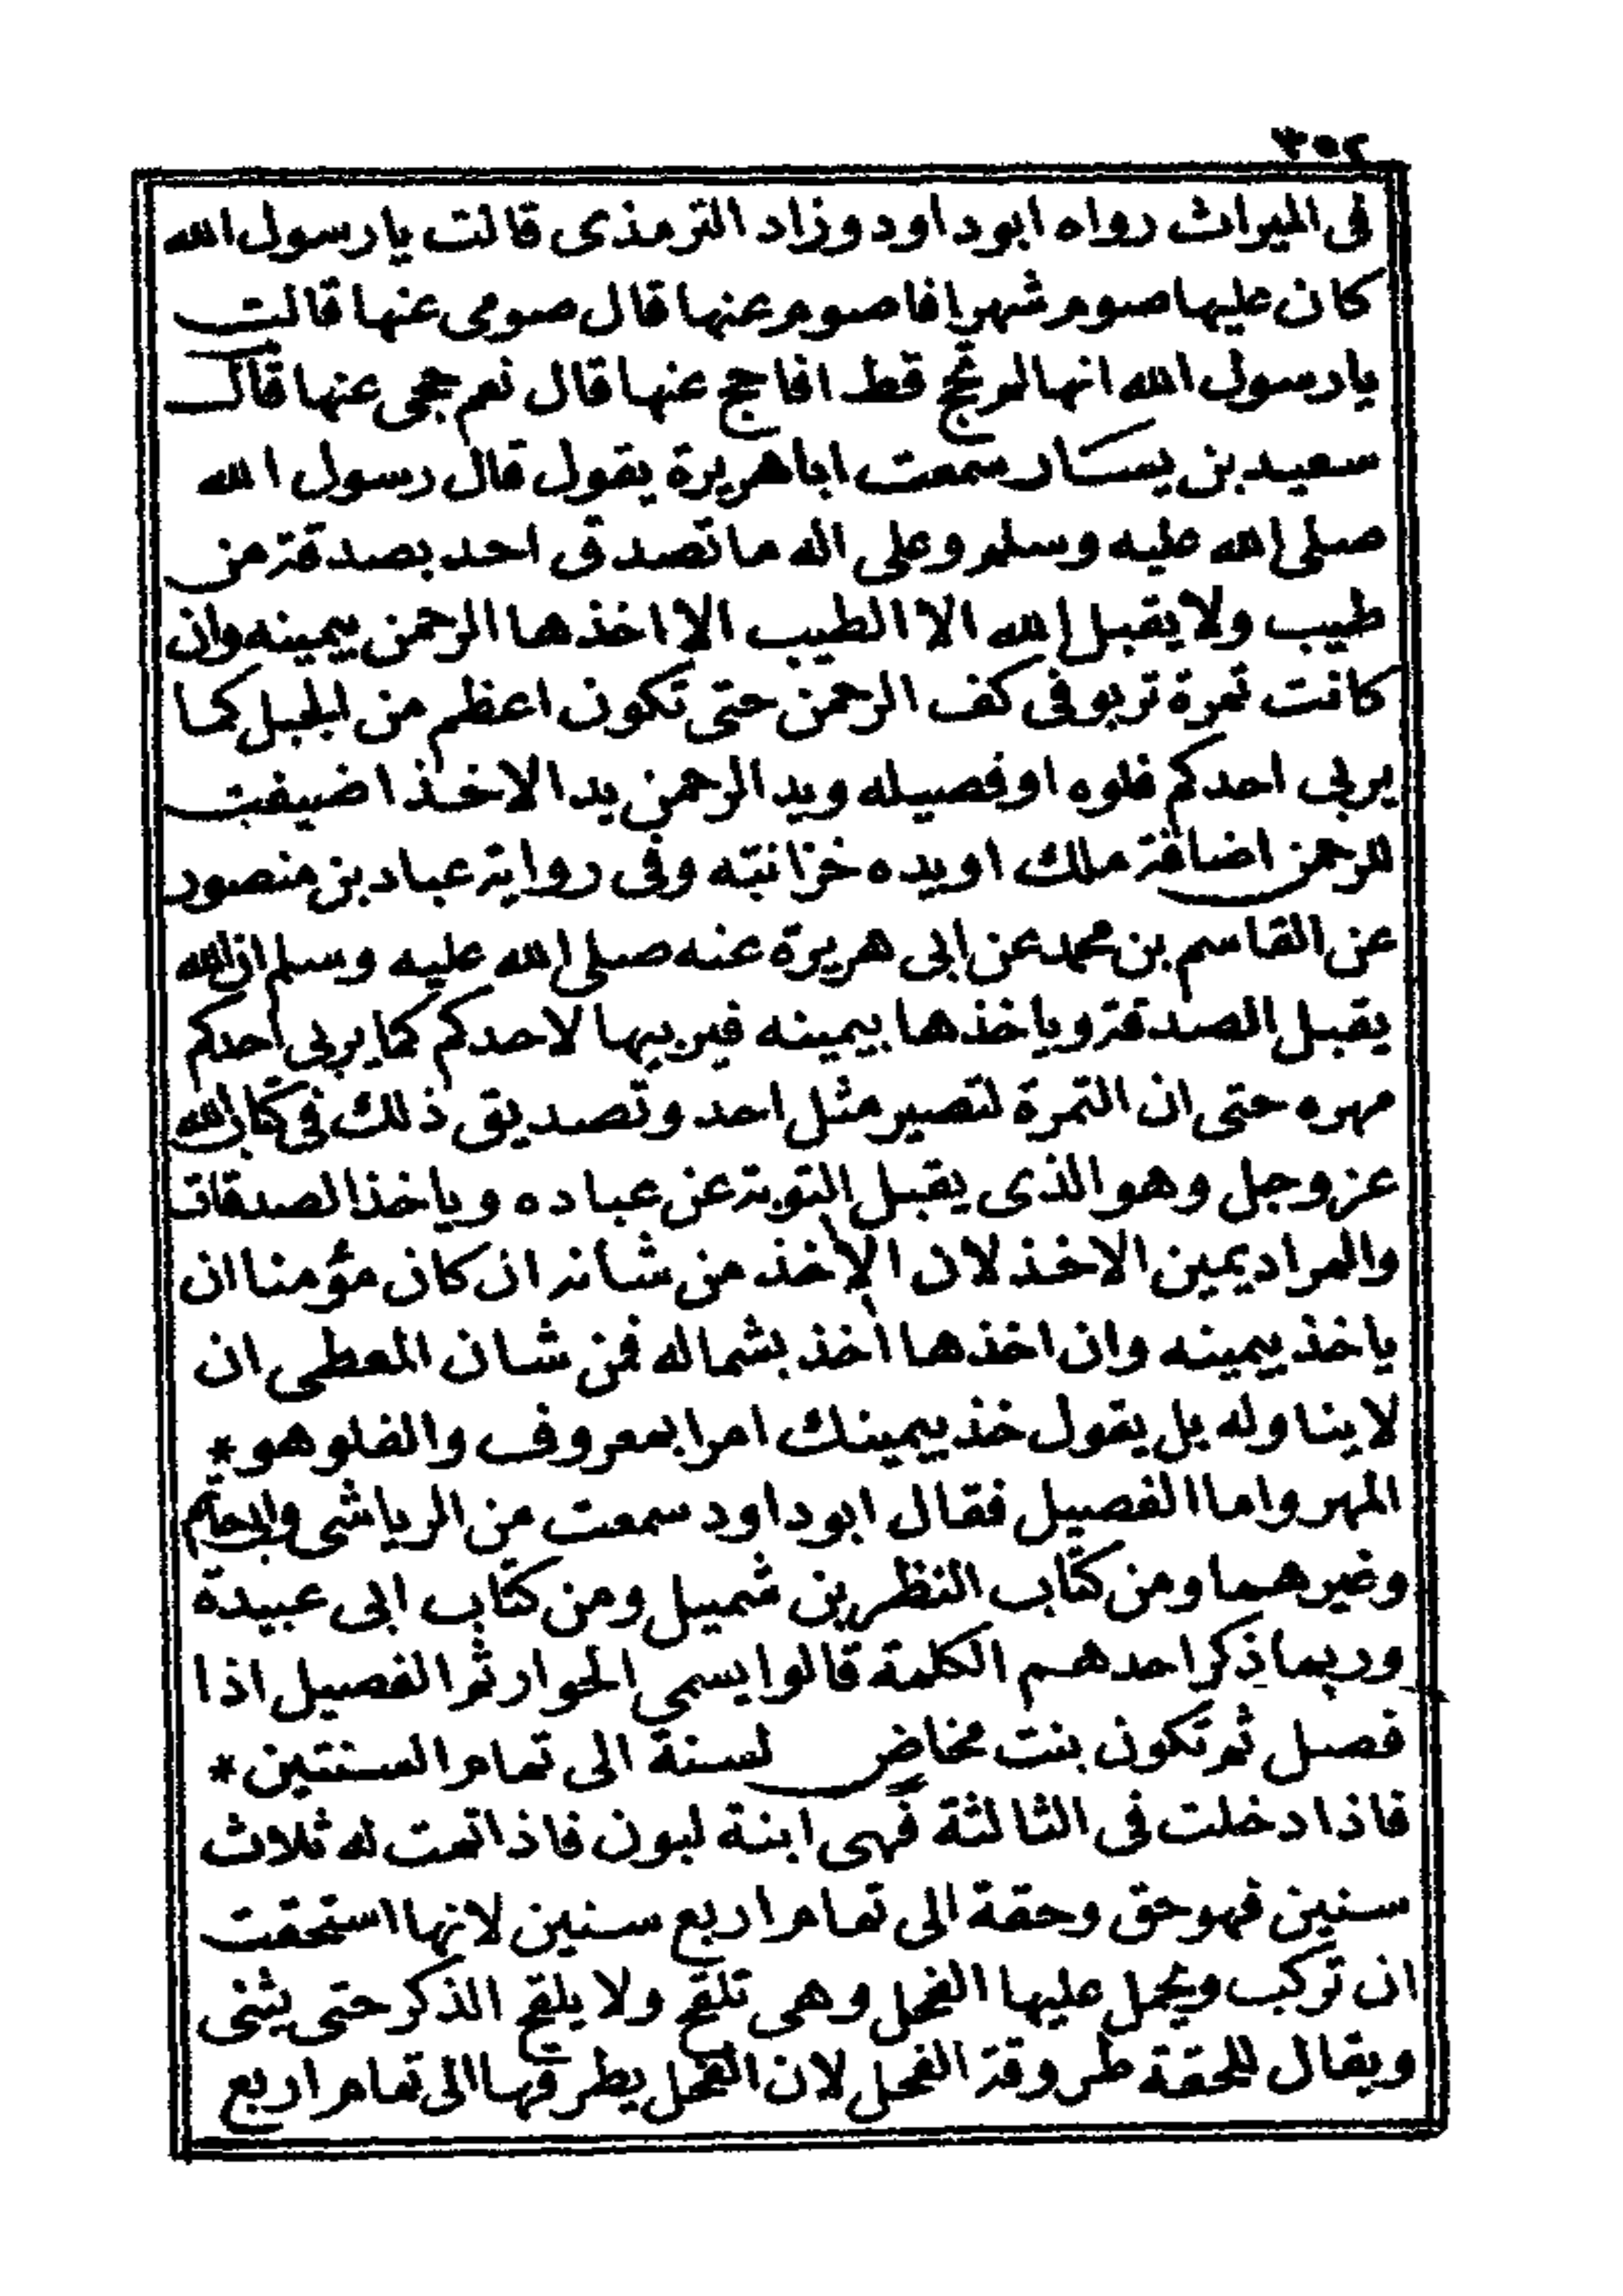 ٣٥٢
فى الميراث رواه ابو داود وزاد الترمذى قالت يا رسول الله
كان عليها صوم شهر افاصوم عنها قال صومى عنها قالت
يا رسول الله انها لم تحج قط افاحج عنها قال نعم حجى عنها قال
سعيد بن يسار سمعت ابا هريرة يقول قال رسول الله
صلى الله عليه وسلم وعلى اله ما تصدق احد بصدقة من
طيب ولا يقبل الله الا الطيب الا اخذها الرحمن بيمينه وان
كانت تمرة تربو فى كف الرحمن حتى تكون اعظم من الجبل كما
يربى احدكم فلوه او فصيله ويد الرحمن يد الاخذ اضيفت
للرحمن اضافة ملك او يده خزانته وفى رواية عباد بن منصور
عن القاسم بن محمد عن ابى هريرة عنه صلى الله عليه وسلم ان الله
يقبل الصدقة وياخذها بيمينه فيربيها لاحدكم كما يربى احدكم
مهره حتى ان التمرة لتصير مثل احد وتصديق ذلك فى كتاب الله
عز وجل وهو الذى يقبل التوبة عن عباده وياخذ الصدقات
والمراد يمين الاخذ لان الاخذ من شانه ان كان مؤمنا ان
ياخذ بيمينه وان اخذها اخذ بشماله فمن شان المعطى ان
لا يناوله بل يقول خذ بيمينك امرا بمعروف والفلو هو *
المهر واما الفصيل فقال ابو داود سمعت من الرياشى وابى حاتم
وغيرهما ومن كتاب النظر بن شميل ومن كتاب ابى عبيدة
وربما ذكر احدهم الكلمة قالوا يسمى الحوار ثم الفصيل اذا
فصل ثم تكون بنت مخاض لسنة الى تمام السنتين *
فاذا دخلت فى الثالثة فهى ابنة لبون فاذا تمت له ثلاث
سنين فهو حق وحقة الى تمام اربع سنين لانها استحقت
ان تركب ويحمل عليها الفحل وهى تلقح ولا يلقح الذكر حتى يثنى
ويقال للحقة طروقة الفحل لان الفحل يطرقها الى تمام اربع